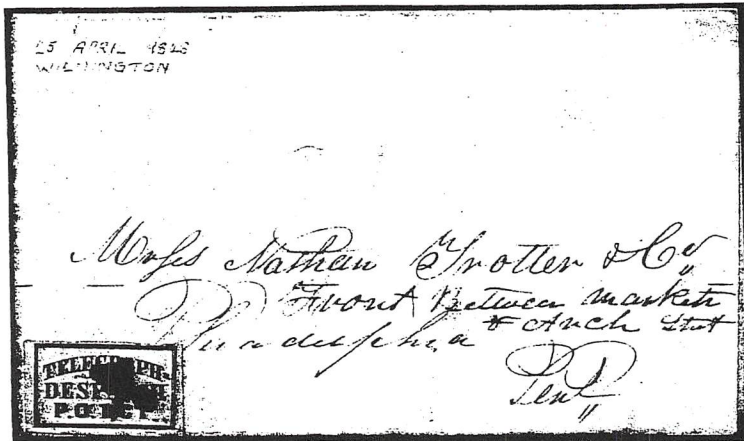 25 APRIL 1828
WILMINGTON
Messs Nathan Trotter & Co
Front Between Markett
& Arch Street
Philadelphia
Penn
TELEGRAPH
DESPATCH
P.O.